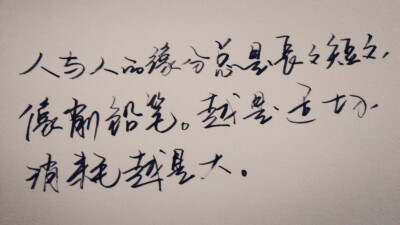 人与人的缘分总是长长短短,
像削铅笔。越是适切,
消耗越是大。